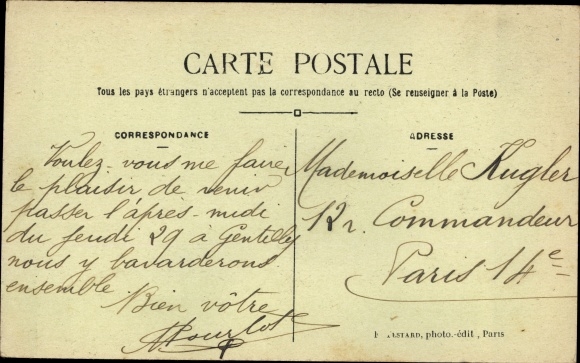 CARTE POSTALE
Tous les pays étrangers n'acceptent pas la correspondance au recto (Se renseigner à la Poste)
CORRESPONDANCE
Voulez-vous me faire
le plaisir de venir
passer l'après-midi
du jeudi 29 à Gentilly
nous y bavarderons
ensemble
Bien vôtre
ADRESSE
Mademoiselle Kugler
12 r. Commandeur
Paris 14e
photo.-édit, Paris